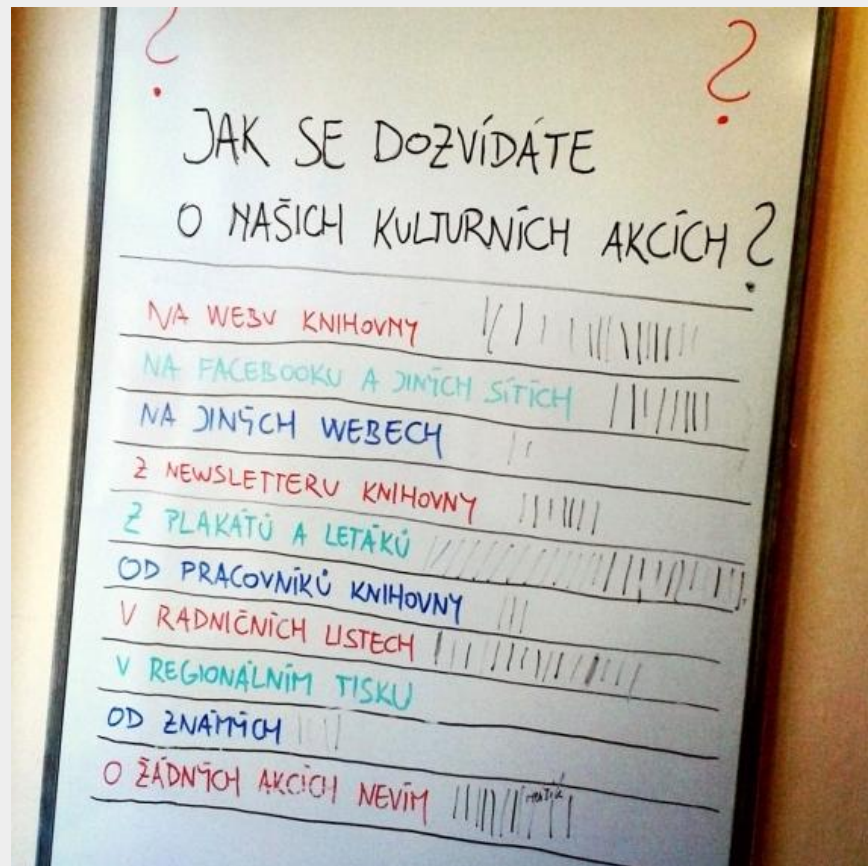 ? ?
JAK SE DOZVÍDÁTE
O NAŠICH KULTURNÍCH AKCÍCH ?
NA WEBU KNIHOVNY
NA FACEBOOKU A JINÝCH SÍTÍCH
NA JINÝCH WEBECH
Z NEWSLETTERU KNIHOVNY
Z PLAKÁTŮ A LETÁKŮ
OD PRACOVNÍKŮ KNIHOVNY
V RADNIČNÍCH LISTECH
V REGIONÁLNÍM TISKU
OD ZNÁMÝCH
O ŽÁDNÝCH AKCÍCH NEVÍM